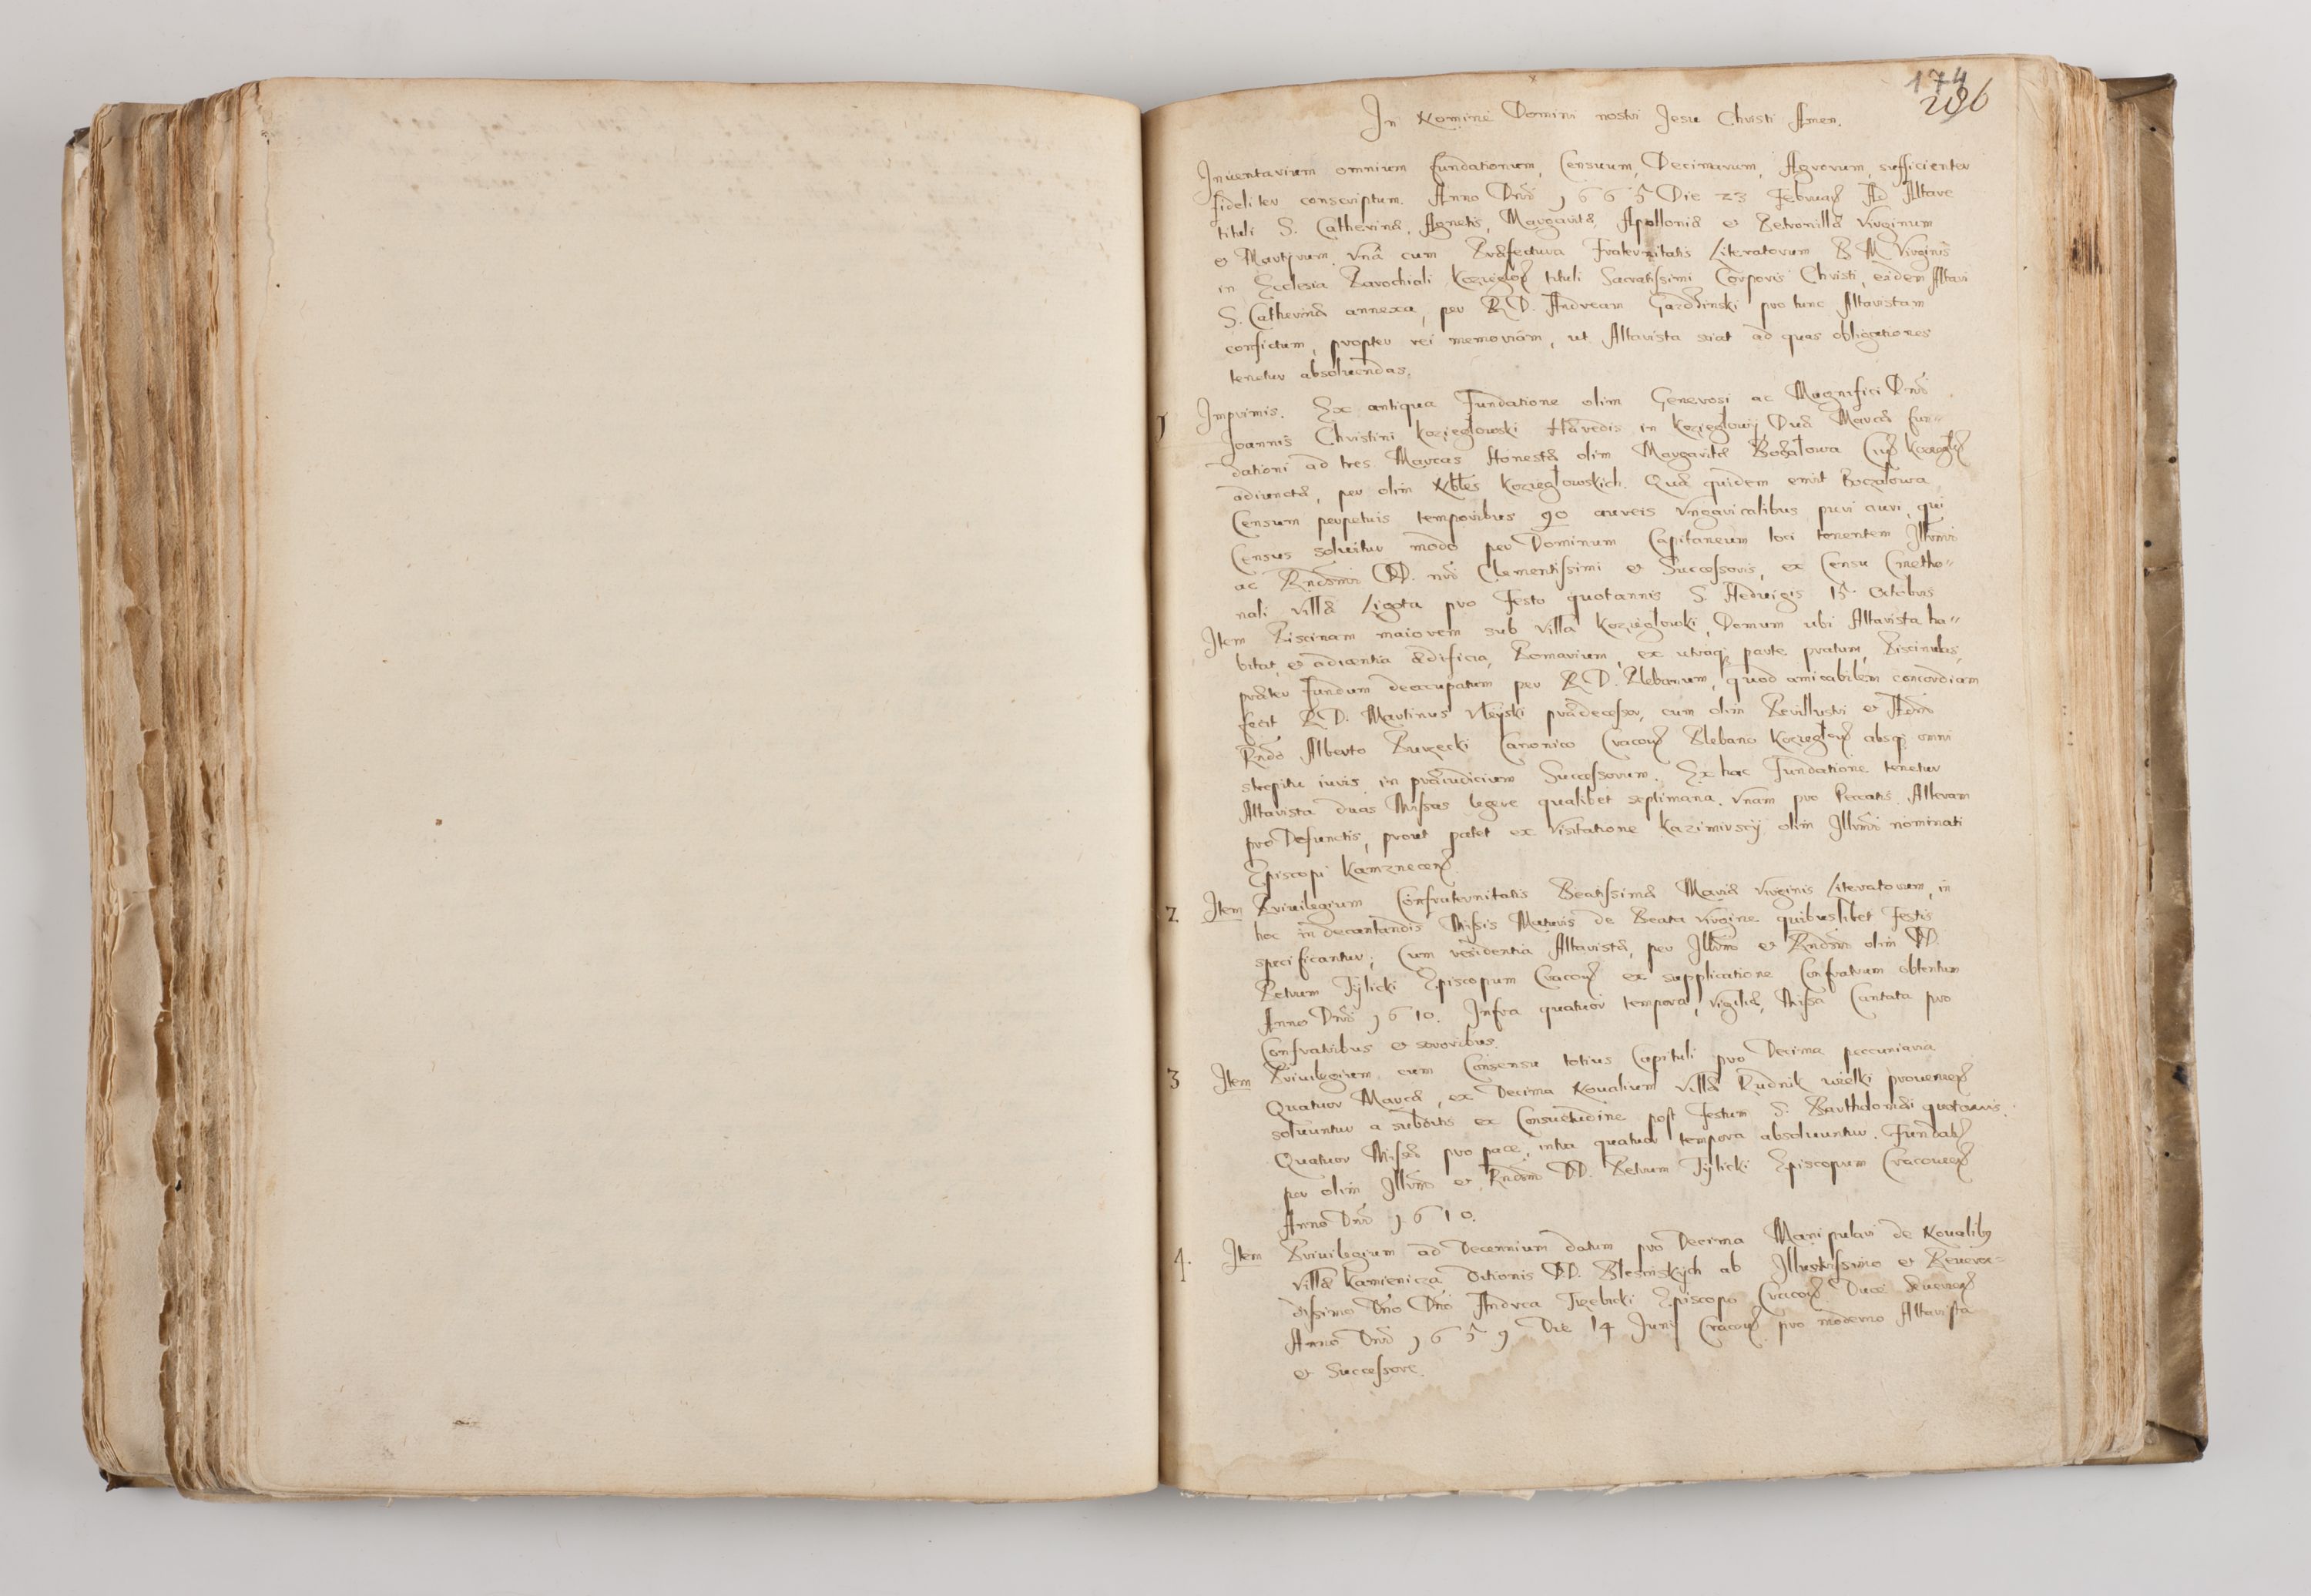 174
286
In Nomine Domini nostri Jesu Christi Amen.
Inuentarium omnium fundationum, Censuum, Decimarum, Agrorum, sufficienter
fideliter conscriptum. Anno Dni 1665 Die 23 Februarij Ad Altare
tituli S. Catherinæ, Agnetis, Margaritæ, Apolloniæ et Petronillæ Virginum
et Martyrum, Vna cum Præfectura Fraternitatis Literatorum B M Virginis
in Ecclesia Parochiali Koziegłoƿ tituli Sacratissimi Corporis Christi, eidem Altari
S. Catherinæ annexa, per R D. Andream Gardzinski pro tunc Altaristam
confectum, propter rei memoriam, ut Altarista sciat ad quas obligationes
tenetur absoluendas.
1 Imprimis. Ex antiqua Fundatione olim Generosi ac Magnifici Dni
Joannis Christini Koziegłowski Hæredis in Koziegłowÿ Duæ Marcæ fun=
dationi ad tres Marcas Honestæ olim Margaritæ Bogałowa Ciuis
adiunctæ, per olim Nbles Koziegłowskich. Quæ quidem emit
Censum perpetuis temporibus 90 aureis Vngaricalibus puri auri, qui
Census soluitur modo per Dominum Capitaneum loci tenentem Illrmi
ac Rndsmi DD. nri Clementissimi et Successoris, ex Censu Cmetho=
nali Villæ Ligota pro Festo quotannis S. Hedvigis 15. Octobris
Item Piscinam maiorem sub Villa Koziegłowki, Domum ubi Altarista ha=
bitat, et adiacentia ædificia, Pomarium, ex utraq; parte pratum, Piscinulas,
præter Fundum deoccupatum per R D. Plebanum, quod amicabilem concordiam
fecit R D. Martinus prædecessor, cum olim Perillustri et Admo
Rndo Alberto Canonico Cracou Plebano Koziegłou absq; omni
strepitu iuris, in præiudicium Successorum. Ex hac Fundatione tenetur
Altarista duas Missas legere qualibet septimana. Vnam pro Peccatis. Alteram
pro Defunctis, prout patet ex Visitatione Kazimirscij olim Illrmi nominati
Episcopi Kamenecen
2 Item Priuilegium Confraternitatis Beatissimæ Mariæ Virginis Literatorum, in
hoc in decantandis Missis Maturis de Beata Virgine quibuslibet Festis
specificantur; Cum residentia Altaristæ, per Illrmo et Rndsmo olim DD.
Petrum Tÿlicki Episcopum Cracou ex supplicatione Confratrum obtentum
Anno Dni 1610. Infra quatuor tempora, Vigiliæ, Missa Cantata pro
Confratribus et sororibus.
3 Item Priuilegium cum Consensu totius Capituli pro Decima peccuniaria
Quatuor Marcæ, ex Decima Noualium Villæ Rudnik wielki prouenien
soluuntur a subditis ex Consuetudine post Festum S. Bartholomæi quotannis.
Quatuor Missæ pro pace, intra quatuor tempora absoluuntur. Fundat
per olim Illrmo et Rndsmo DD. Petrum Tÿlicki Episcopum Cracouien
Anno Dni 1610.
4. Item Priuilegium ad Decennium datum pro Decima Manipulari de Noualib9
Villæ Kamienica ditionis DD. ab Illustrissimo et Reueren=
dissimo Dno Dno Andrea Trzebicki Episcopo Cracou Duce Seuerien
Anno Dni 1659 Die 14 Junij Cracou pro moderno Altarista
et Successore.